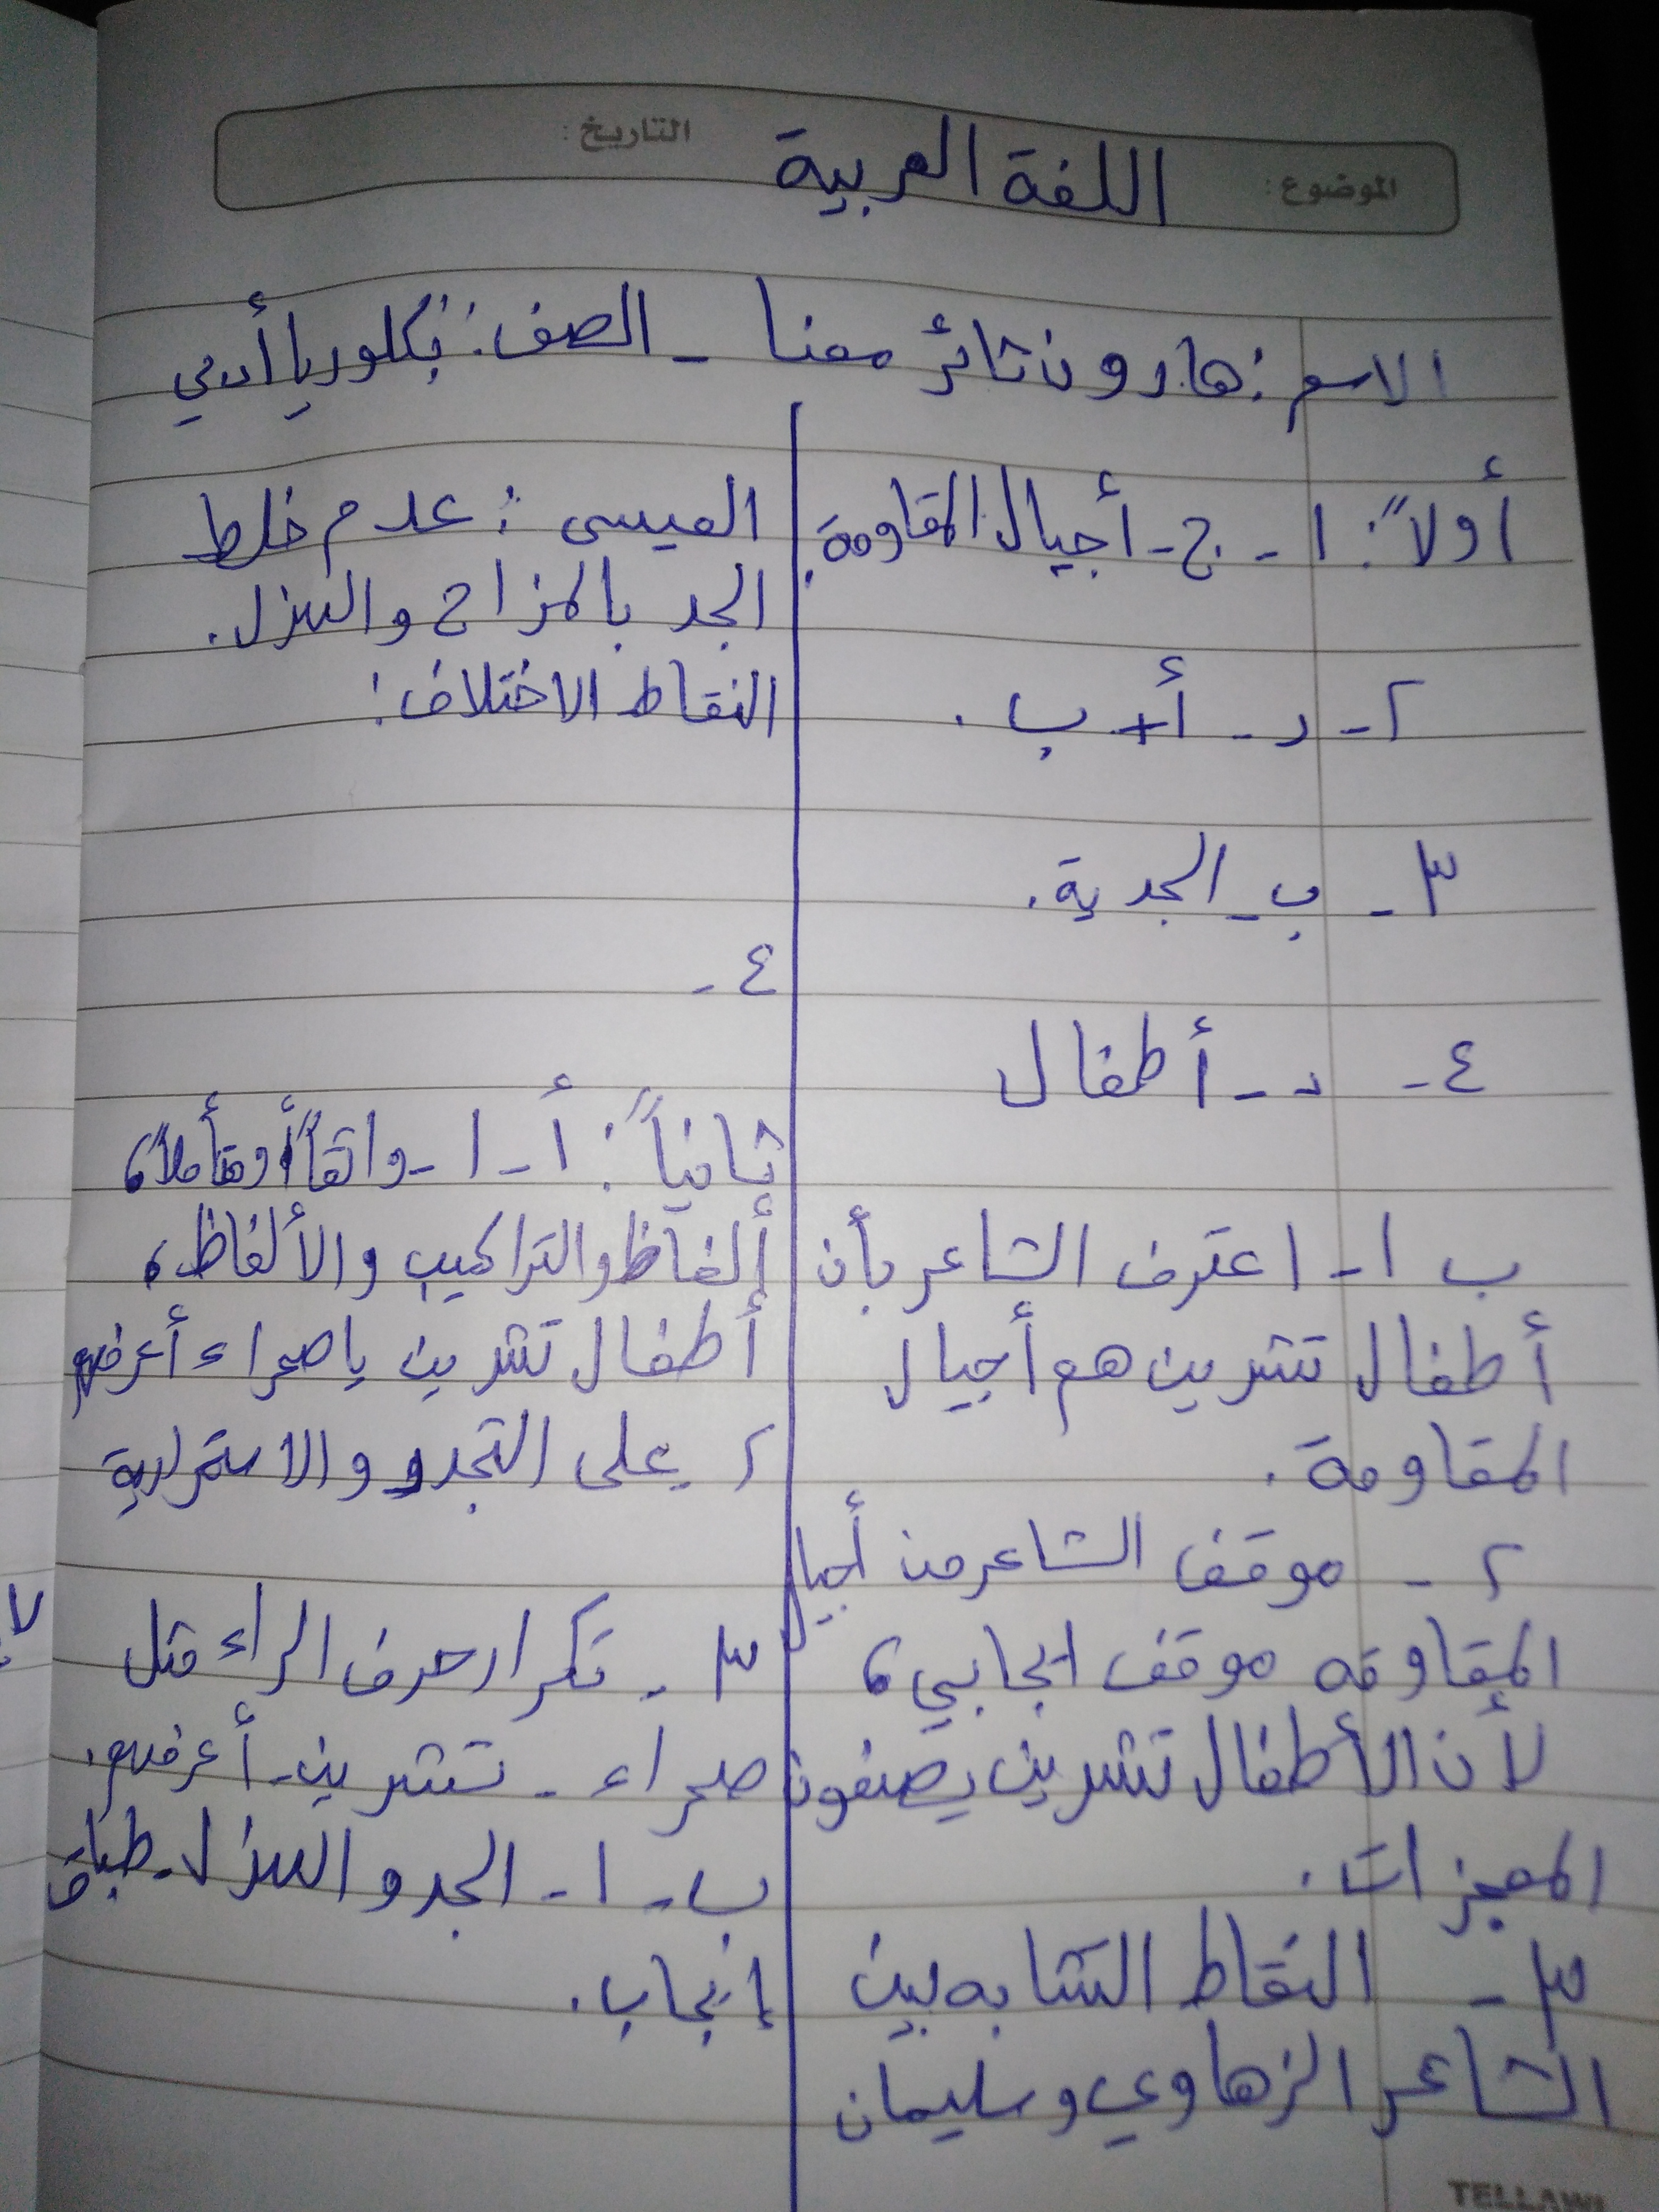 الموضوع: اللغة العربية التاريخ:
الاسم: هارون ثائر مهنا - الصف: بكلوريا أدبي
أولاً: ١ - ج - أجيال المقاومة.
٢ - د - أ + ب.
٣ - ب - الجدية.
٤ - د - أطفال
ب ١ - اعترف الشاعر بأن
أطفال تشرين هم أجيال
المقاومة.
٢ - موقف الشاعر من أجيال
المقاومه موقف ايجابي،
لأن الأطفال تشرين يصنعون
المعجزات.
٣ - النقاط التشابه بين
الشاعر الزهاوي وسليمان
العيسى: عدم خلط
الجد بالمزاح والهزل.
النقاط الاختلاف:
٤ -
ثانياً: أ - ١ - واثقاً أو متأملاً،
ألفاظ والتراكيب والألفاظ،
أطفال تشرين يا صحراء أعرفهم
٢ على التجدد والاستمرارية
٣ - تكرار حرف الراء مثل
صحراء - تشرين - أعرفهم.
ب - ١ - الجد والهزل - طباق
إيجاب.
TELLAWI